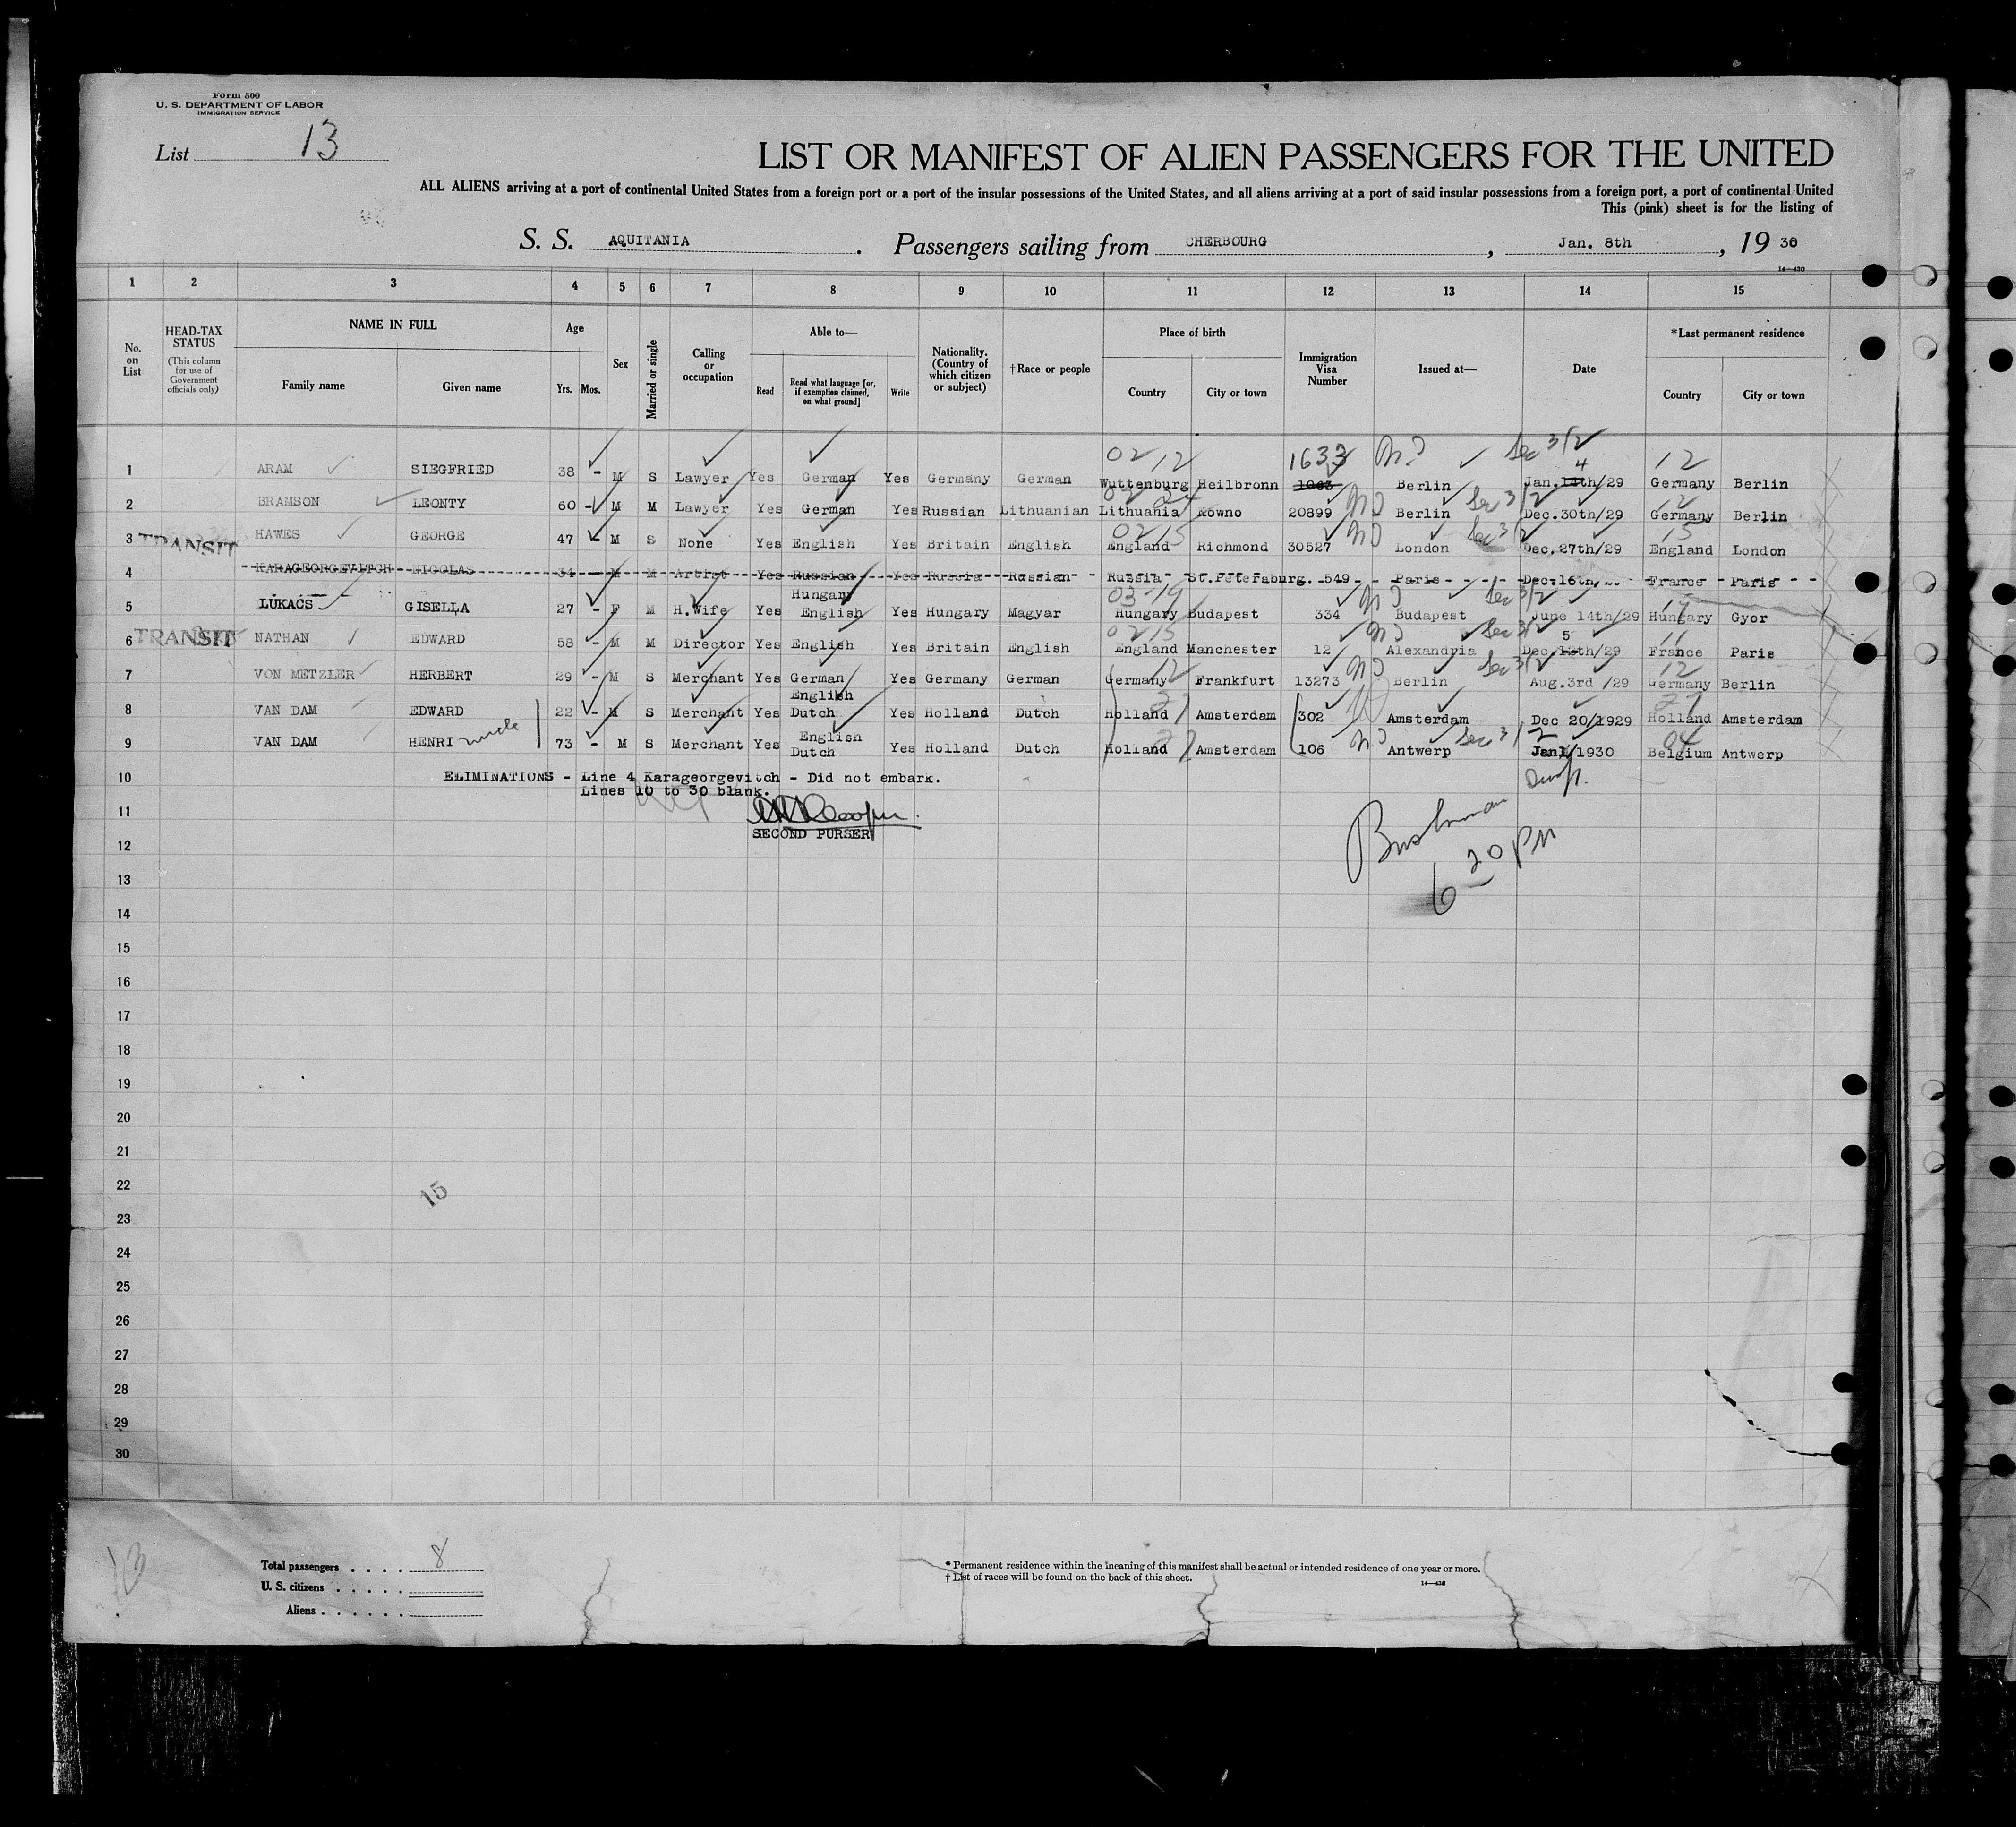 Form 500
U. S. DEPARTMENT OF LABOR
IMMIGRATION SERVICE
List 13
LIST OR MANIFEST OF ALIEN PASSENGERS FOR THE UNITED
ALL ALIENS arriving at a port of continental United States from a foreign port or a port of the insular possessions of the United States, and all aliens arriving at a port of said insular possessions from a foreign port, a port of continental United
This (pink) sheet is for the listing of
S. S. AQUITANIA . Passengers sailing from CHERBOURG , Jan. 8th , 19 30
14—430
1 2 3 4 5 6 7 8 9 10 11 12 13 14 15
No. on List
HEAD-TAX STATUS (This column for use of Government officials only)
NAME IN FULL Family name Given name
Age Yrs. Mos.
Sex
Married or single
Calling or occupation
Able to— Read Read what language [or, if exemption claimed, on what ground] Write
Nationality. (Country of which citizen or subject)
†Race or people
Place of birth Country City or town
Immigration Visa Number
Issued at—
Date
*Last permanent residence Country City or town
02 12 1633 Sec 3/2 4 12
1 ARAM SIEGFRIED 38 - M S Lawyer Yes German Yes Germany German Wuttenburg Heilbronn 1063 Berlin Jan.14th/29 Germany Berlin
Sec 3/2 12
2 BRAMSON LEONTY 60 - M M Lawyer Yes German Yes Russian Lithuanian Lithuania Kowno 20899 Berlin Dec.30th/29 Germany Berlin
02 15 Sec 3/2 15
3 TRANSIT HAWES GEORGE 47 - M S None Yes English Yes Britain English England Richmond 30527 London Dec.27th/29 England London
4 KARAGEORGEVITCH NICOLAS 34 - M M Artist Yes Russian Yes Russia Russian Russia St.Petersburg. 549 Paris Dec.16th/ France Paris
03 19 Sec 3/2
5 LUKACS GISELLA 27 - F M H.Wife Yes Hungary English Yes Hungary Magyar Hungary Budapest 334 Budapest June 14th/29 Hungary Gyor
02 15 Sec 3/2 5 11
6 TRANSIT NATHAN EDWARD 58 - M M Director Yes English Yes Britain English England Manchester 12 Alexandria Dec.12th/29 France Paris
12 Sec 3/2 12
7 VON METZLER HERBERT 29 - M S Merchant Yes German Yes Germany German Germany Frankfurt 13273 Berlin Aug.3rd /29 Germany Berlin
27 27
8 VAN DAM EDWARD 22 - M S Merchant Yes English Dutch Yes Holland Dutch Holland Amsterdam 302 Amsterdam Dec 20/1929 Holland Amsterdam
27 Sec 3/2 04
9 VAN DAM HENRI uncle 73 - M S Merchant Yes English Dutch Yes Holland Dutch Holland Amsterdam 106 Antwerp Jan /1930 Belgium Antwerp
10 ELIMINATIONS - Line 4 Karageorgevitch - Did not embark.
Lines 10 to 30 blank.
11
SECOND PURSER
12
Bushman
6 20 PM
13
14
15
16
17
18
19
20
21
22
15
23
24
25
26
27
28
29
30
13
Total passengers . . . . 8
U. S. citizens . . . . .
Aliens . . . . . .
* Permanent residence within the meaning of this manifest shall be actual or intended residence of one year or more.
† List of races will be found on the back of this sheet.
14—430